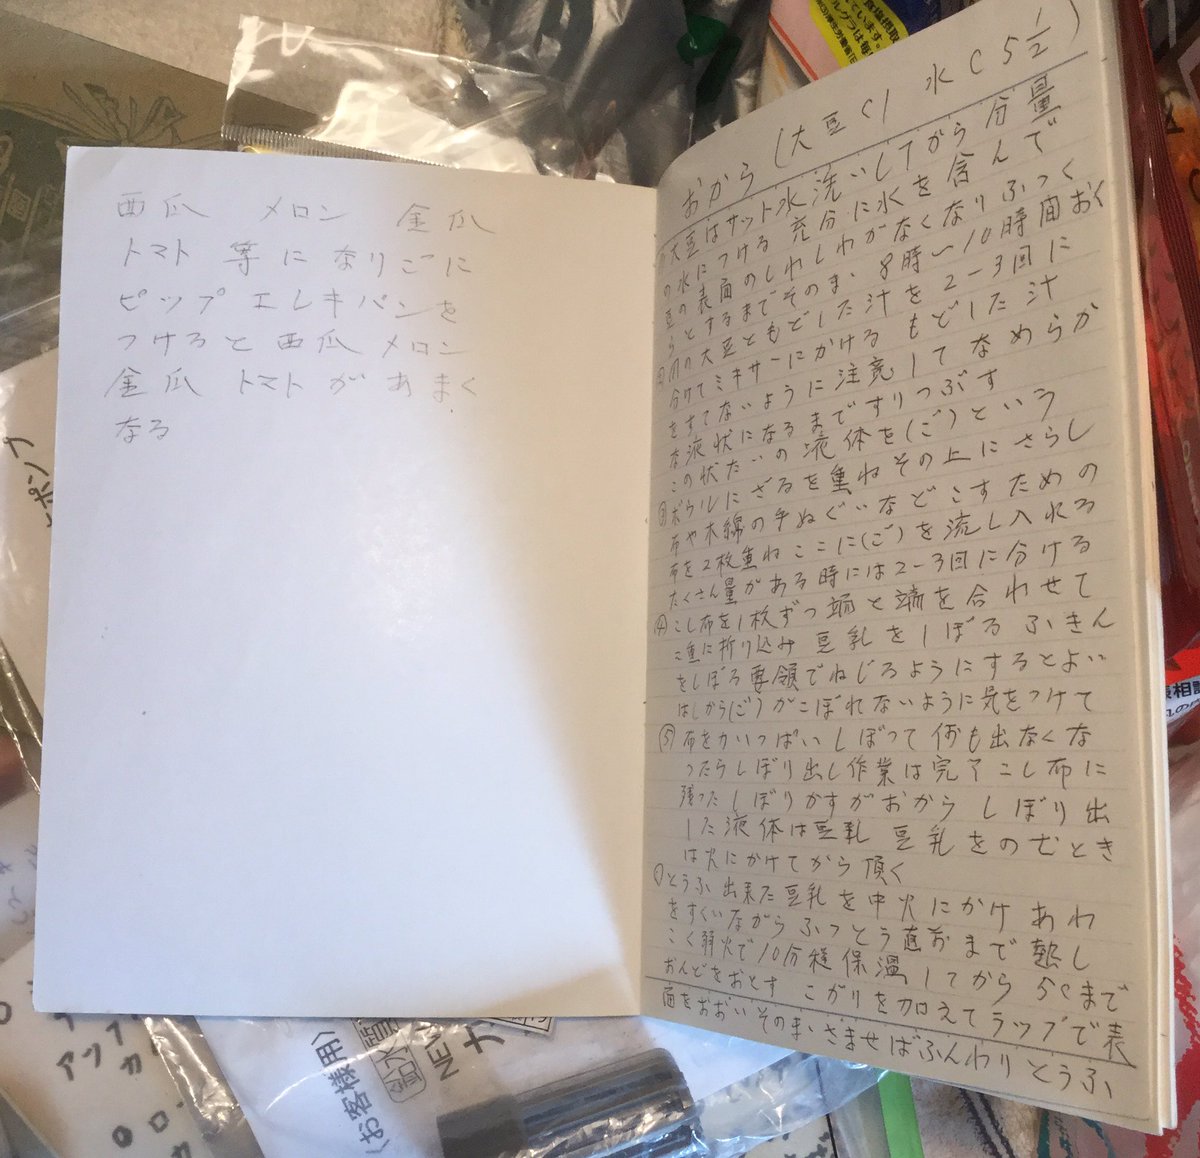 西瓜 メロン 金瓜
トマト 等になりごに
ピップエレキバンを
つけると西瓜メロン
金瓜トマトがあまく
なる
おから(大豆C1 水C5 1/2)
①大豆はサット水洗いしてから分量
の水につける 充分に水を含んで
豆の表面のしわしわがなくなりふっく
らとするまでそのまゝ8時〜10時間おく
②の大豆ともどした汁を2-3回に
分けてミキサーにかける もどした汁
をすてないように注意してなめらか
な液状になるまですりつぶす
この状たいの液体を(ご)という
③ボウルにざるを重ねその上にさらし
布や木綿の手ぬぐいなどこすための
布を2枚重ねここに(ご)を流し入れる
たくさん量がある時には2-3回に分ける
④こし布を1枚ずつ端と端を合わせて
二重に折り込み 豆乳をしぼる ふきん
をしぼる要領でねじるようにするとよい
はしから(ご)がこぼれないように気をつけて
⑤布をかいっぱいしぼって何も出なくな
ったらしぼり出し作業は完了こし布に
残ったしぼりかすがおから しぼり出
した液体は豆乳 豆乳をのむとき
は火にかけてから頂く
①とうふ 出来た豆乳を中火にかけあわ
をすくいながらふっとう直前まで熱し
ごく弱火で10分程保温してから
おんどをおとす こがりを加えてラップで表
面をおおいそのまゝさませばふんわりとうふ
食塩摂取
(お客様用)
NEW
アップ